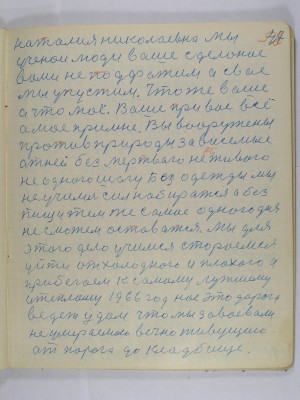 42
наталия николаевна мы
ученои люди ваше сделоное
вами не поддражим а свае
мы упустим. Что же ваше
а что моё. Ваше при вас всё
а мое при мне. Вы вооружены
против природы зависемые
атней без мертваго не живого
не одного числу Без одежды мы
не училися сил набиратся а без
пищи тем же самае одного дня
не сможем оставатся. Мы для
этого дело учимся стораемся
уйти от холодного и плохого и
прибегаем к самому лутшому
и теплому 1966 год нас это дорога
ведет у дом что мы завоевали
неумераемаю вечно живущаю
от порога до кладбище.